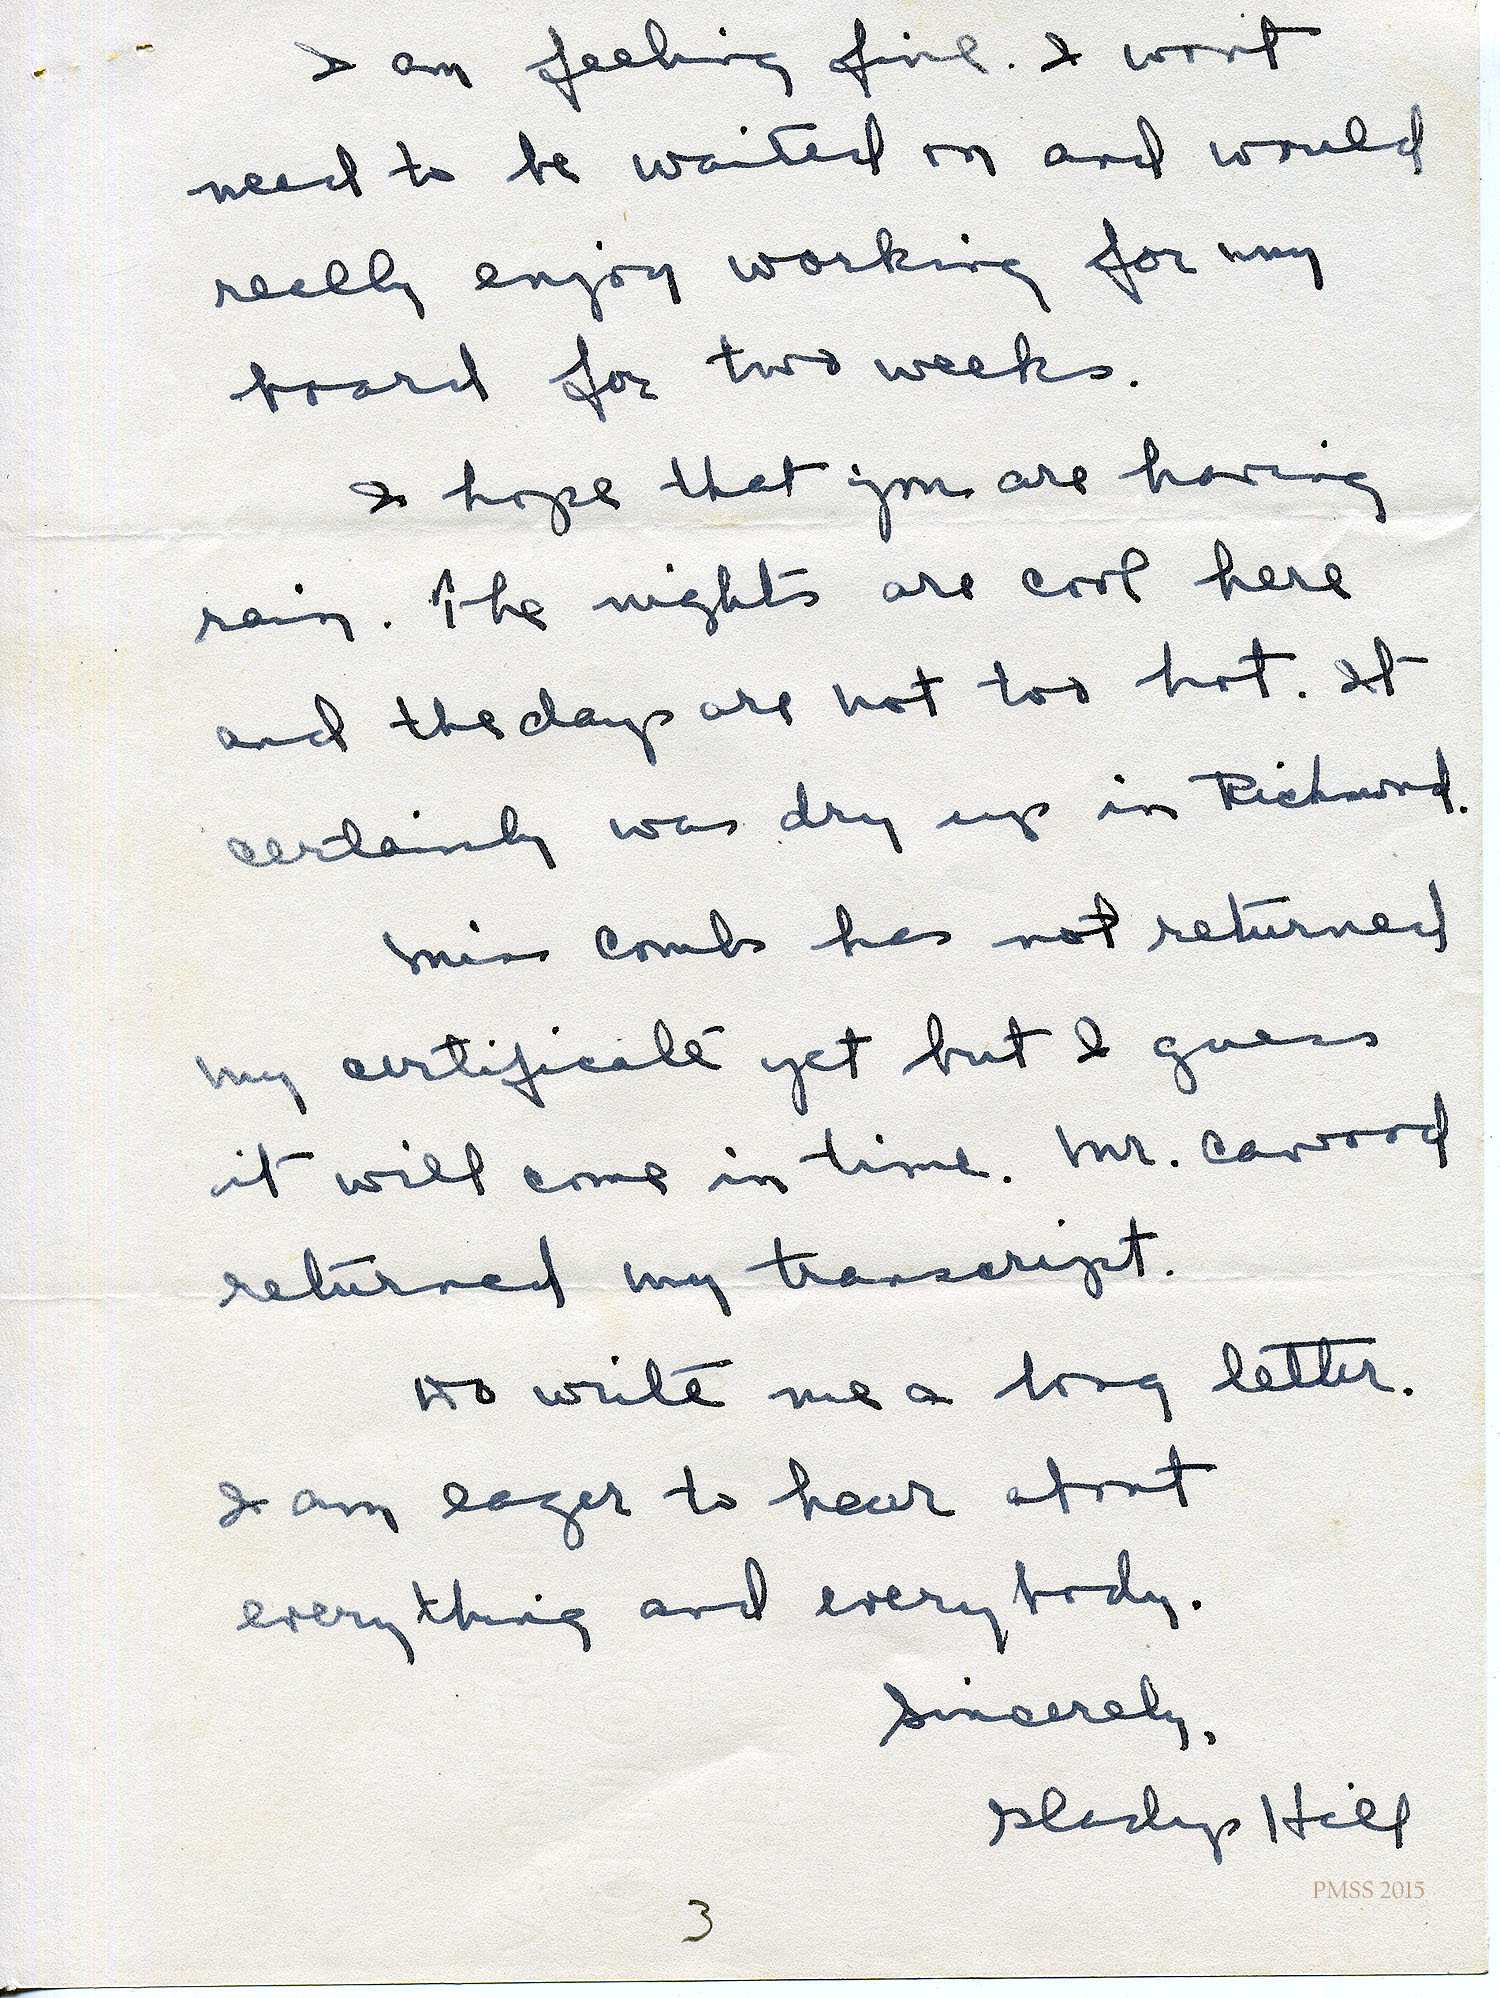 I am feeling fine. I wont
need to be waited on and would
really enjoy working for my
board for two weeks.
I hope that you are having
rain. The nights are cool here
and the days are not too hot. It
certainly was dry up in Richmond.
Miss Combs has not returned
my certificate yet but I guess
it will come in time. Mr. Cawood
returned my transcript.
Do write me a long letter.
I am eager to hear about
everything and everybody.
Sincerely,
Gladys Hill
PMSS 2015
3